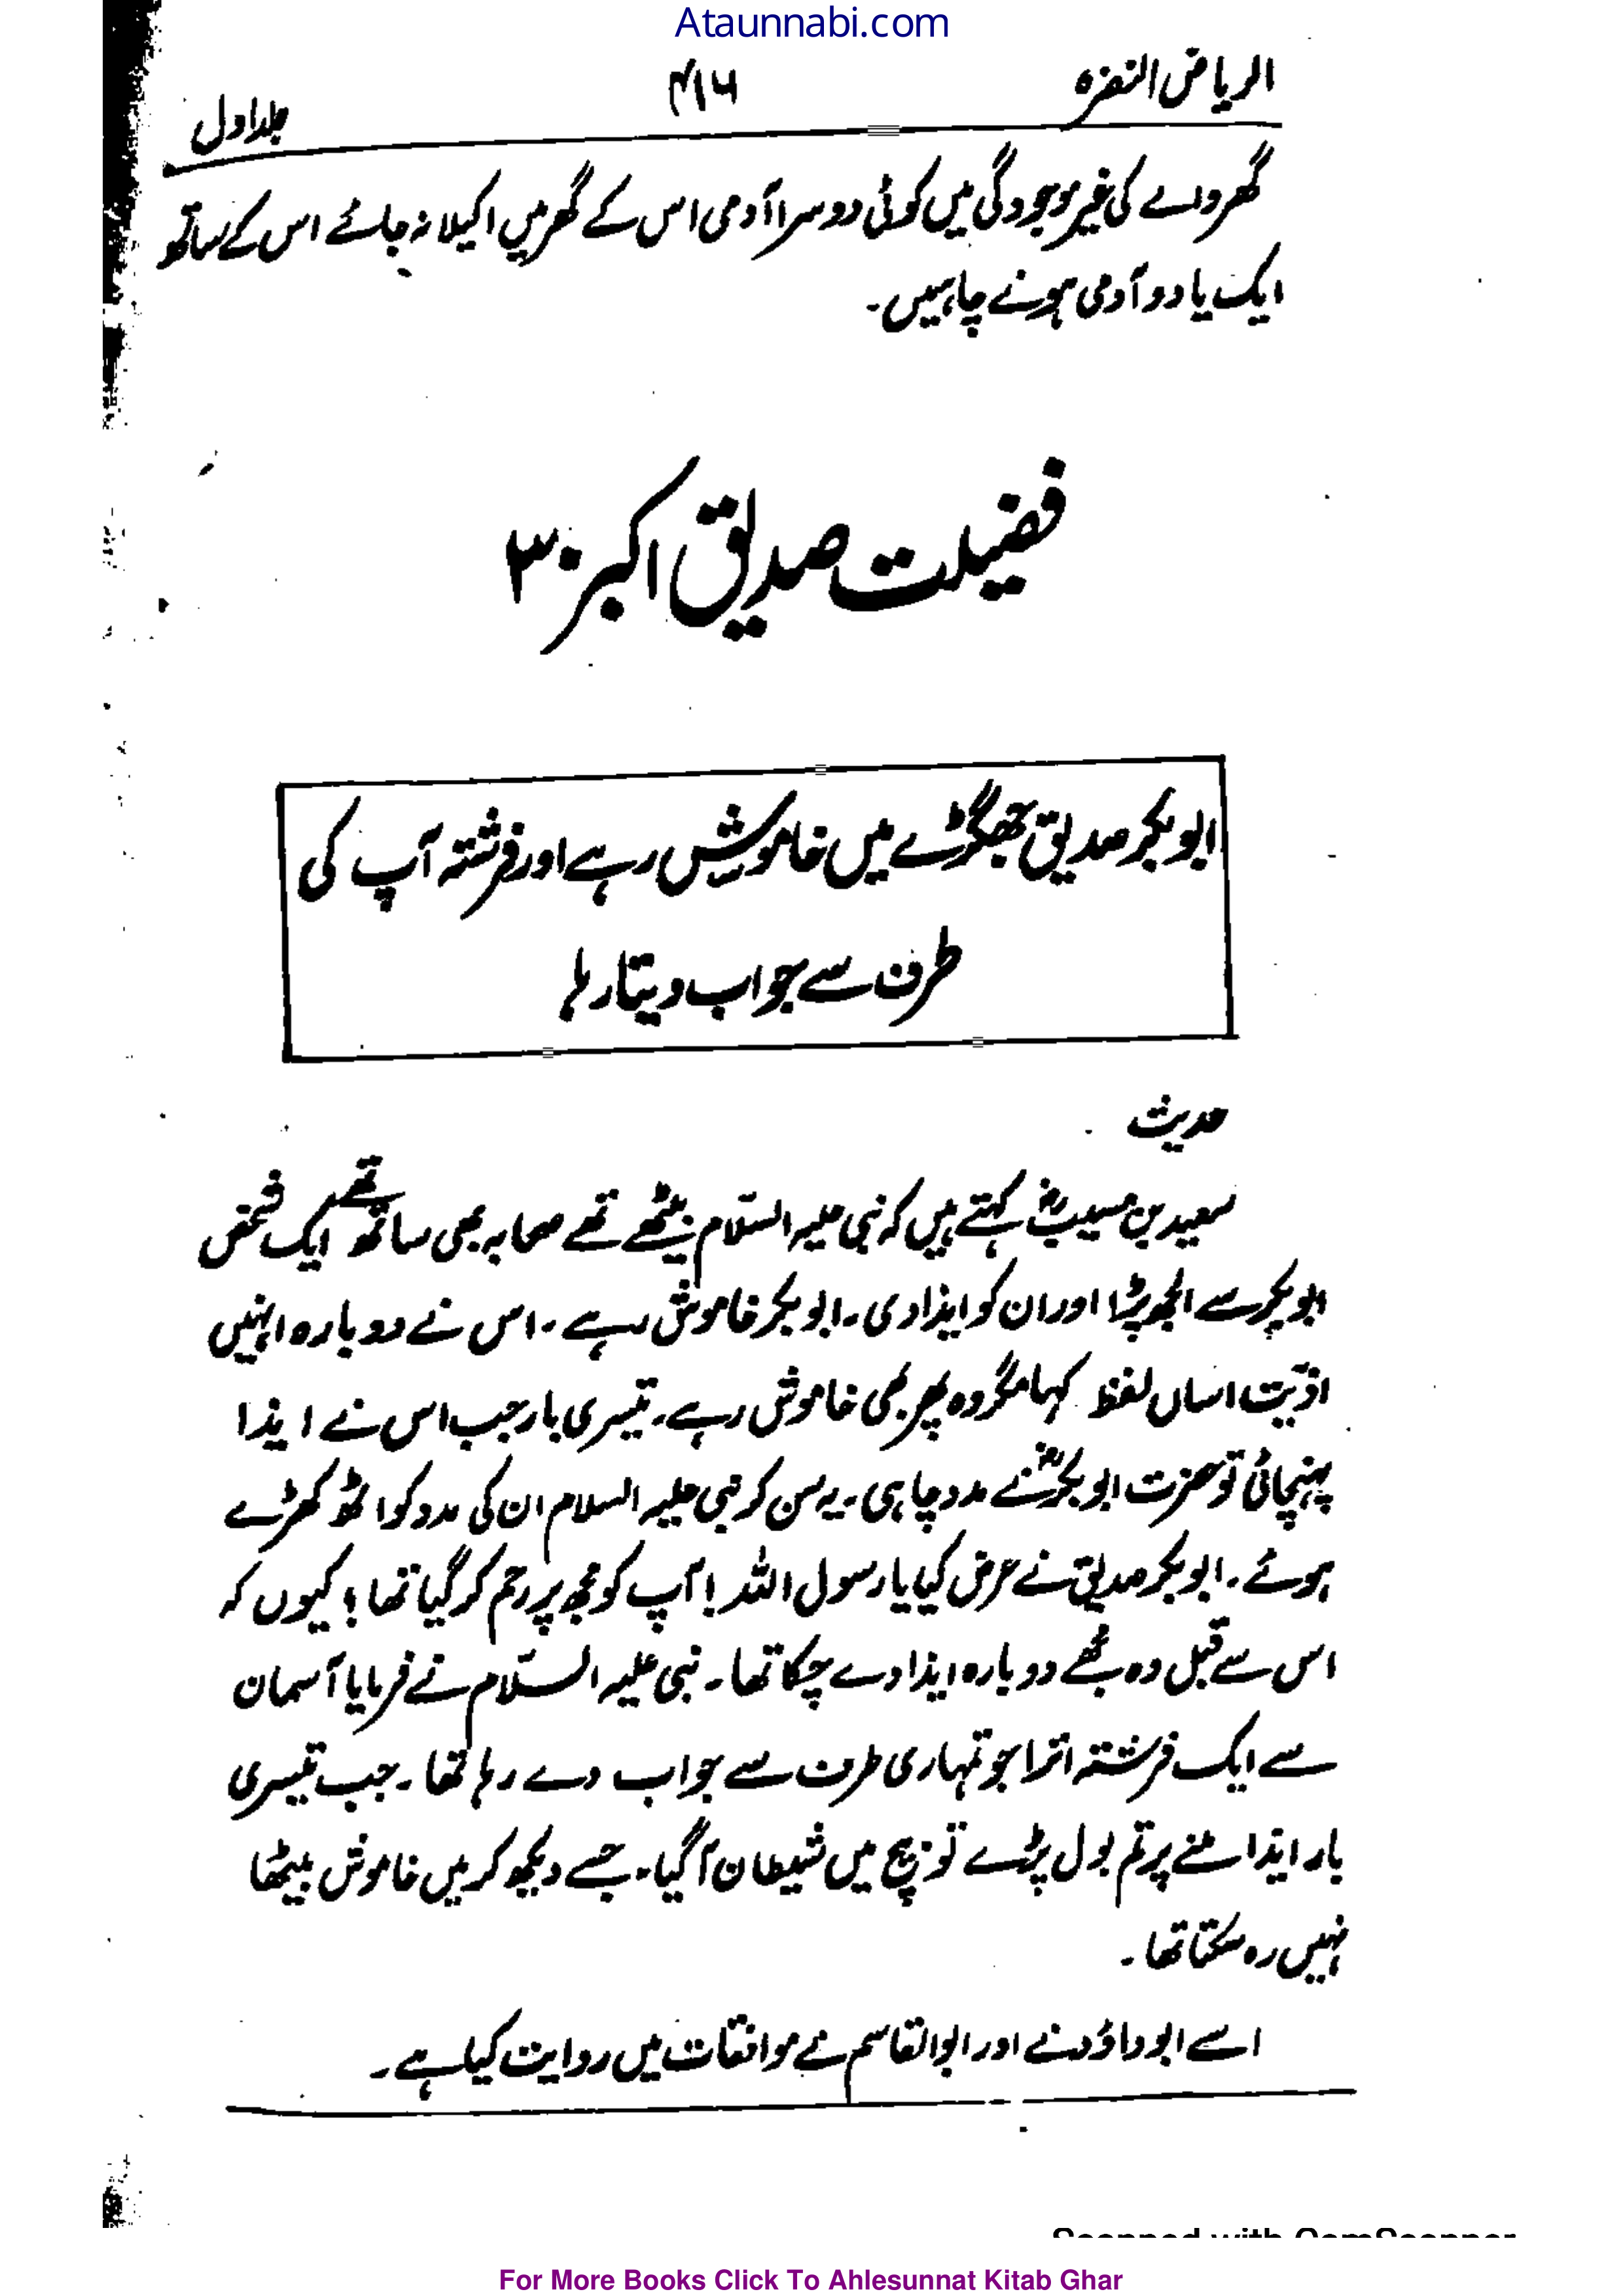 Ataunnabi.com
الریاض النضرہ ۴۱۶ جلد اول
گھر والے کی غیر موجودگی میں کوئی دوسرا آدمی اس کے گھر میں اکیلا نہ جائے اس کے ساتھ
ایک یا دو آدمی ہونے چاہییں۔
فضیلت صدیق اکبر ۳۰
ابو بکر صدیق جھگڑے میں خاموش رہے اور فرشتہ آپ کی
طرف سے جواب دیتا رہا
حدیث
سعید بن مسیب رضؓ کہتے ہیں کہ نبی علیہ السّلام بیٹھے تھے صحابہ بھی ساتھ تھے ایک شخص
ابوبکر سے الجھ پڑا اور ان کو ایذا دی۔ ابو بکر خاموش رہے۔ اس نے دوبارہ انہیں
اذیّت اساں لفظ کہا مگر وہ پھر بھی خاموش رہے۔ تیسری بار جب اس نے ایذا
پہنچائی تو حضرت ابو بکرؓ نے مدد چاہی۔ یہ سن کر نبی علیہ السلام ان کی مدد کو اٹھ کھڑے
ہوئے۔ ابو بکر صدیق نے عرض کیا یا رسول اللہ! آپ کو مجھ پر رحم کر گیا تھا؟ کیوں کہ
اس سے قبل وہ مجھے دوبارہ ایذا دے چکا تھا۔ نبی علیہ السّلام نے فرمایا آسمان
سے ایک فرشتہ اترا جو تمہاری طرف سے جواب دے رہا تھا۔ جب تیسری
بار ایذا ملنے پر تم بول پڑے تو بیچ میں شیطان آ گیا۔ جسے دیکھ کر میں خاموش بیٹھا
نہیں رہ سکتا تھا۔
اسے ابو داؤد نے اور ابوالقاسم نے موافقات میں روایت کیا ہے۔
Scanned with CamScanner
For More Books Click To Ahlesunnat Kitab Ghar